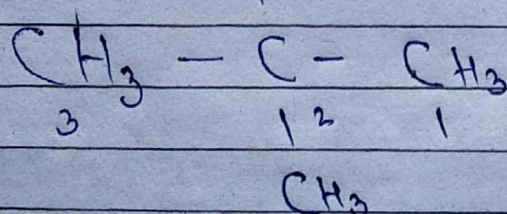 CH₃ – C – CH₃
3 | 2 1
CH₃